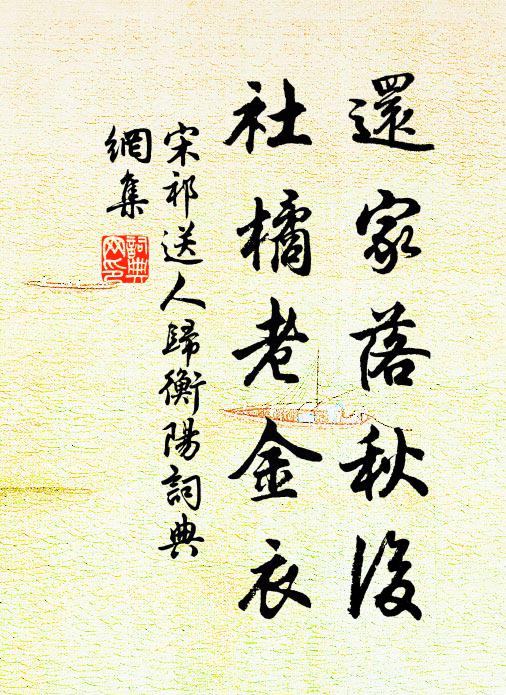 還家落秋後
社橘老金衣
宋祁送人歸衡陽詞典
網集
詞典
网印